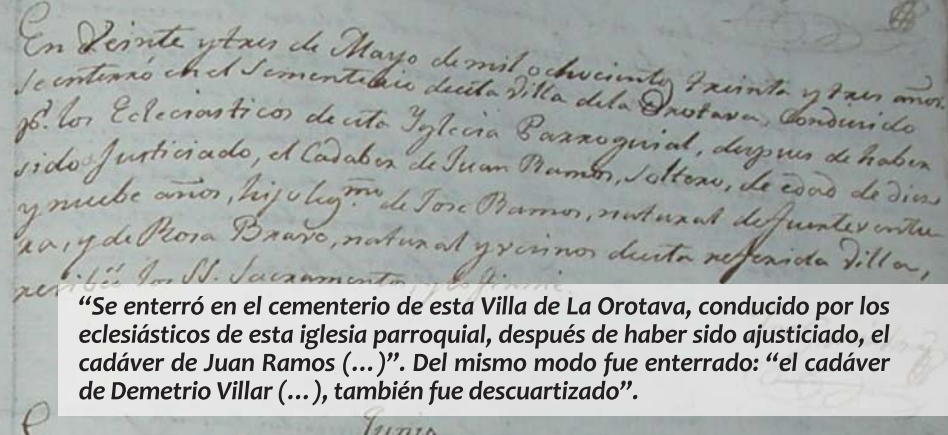 En Veinte y tres de Mayo de mil ochocientos treinta y tres años,
se enterró en el sementerio de esta Villa de la Orotava, Conducido
pr. los Eclesiasticos de esta Yglecia Parroquial, despues de haber
sido Justiciado, el Cadaber de Juan Ramos, Soltero, de edad de dies
y nuebe años, hijo legmo. de Jose Ramos, natural de fuerteventu-
ra, y de Rosa Bravo, natural y vecinos de esta referida Villa,
recibió los SS. Sacramentos, y lo firmé.
“Se enterró en el cementerio de esta Villa de La Orotava, conducido por los
eclesiásticos de esta iglesia parroquial, después de haber sido ajusticiado, el
cadáver de Juan Ramos (...)”. Del mismo modo fue enterrado: “el cadáver
de Demetrio Villar (...), también fue descuartizado”.
Junio